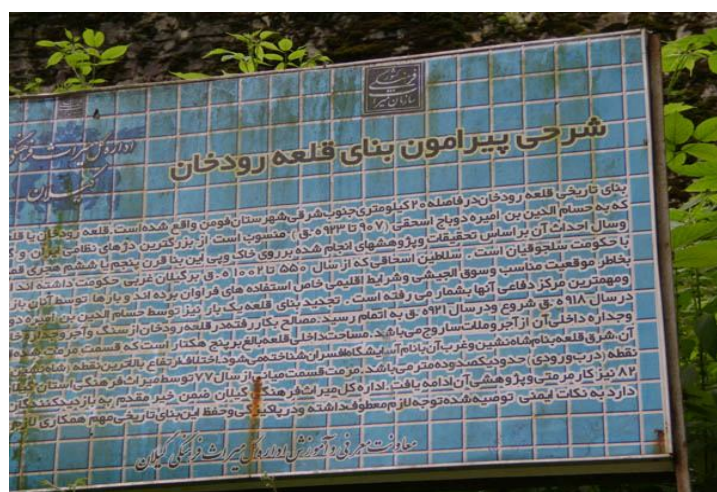 سازمان میراث فرهنگی
اداره کل میراث فرهنگی
گیلان
شرحی پیرامون بنای قلعه رودخان
بنای تاریخی قلعه رودخان در فاصله ۲۰ کیلومتری جنوب شرقی شهرستان فومن واقع شده است. قلعه رودخان یا قلعه
که به حسام الدین بن امیره دوباج اسحقی (۹۰۷ تا ۹۲۳ ه.ق) منسوب است از بزرگترین دژهای نظامی ایران و
وسال احداث آن بر اساس تحقیقات وپژوهشهای انجام شده بر روی خاک وپی این بنا قرن پنجم تا ششم هجری قمری
با حکومت سلجوقیان است. سلاطین اسحاقی که از سال ۵۵۰ تا ۱۰۰۲ ه.ق بر گیلان غربی حکومت داشته اند
بخاطر موقعیت مناسب وسوق الجیشی وشرایط اقلیمی خاص استفاده های فراوان برده اند و بارها توسط آنان باز
ومهمترین مرکز دفاعی آنها بشمار می رفته است. تجدید بنای قلعه یک بار نیز توسط حسام الدین بن
در سال ۹۱۸ ه.ق شروع ودر سال ۹۲۱ ه.ق به اتمام رسید. مصالح بکار رفته در قلعه رودخان از سنگ و آجر و
وجداره داخلی آن از آجر و ملات ساروج می باشد. مساحت داخلی قلعه بالغ بر پنج هکتار است که قسمت مرتفع
آن، شرق قلعه بنام شاه نشین وغرب آن بنام آسایشگاه افسران شناخته می شود. اختلاف ارتفاع بالاترین نقطه (شاه نشین)
نقطه (درب ورودی) حدود یکصد و ده متر می باشد. مرمت قسمت میانی از سال ۷۷ توسط میراث فرهنگی استان گیلان
۸۲ نیز کار مرمتی و پژوهشی آن ادامه یافت. اداره کل میراث فرهنگی گیلان ضمن خیر مقدم به بازدیدکنندگان
دارد به نکات ایمنی توصیه شده توجه لازم معطوف داشته و در پاکیزگی وحفظ این بنای تاریخی مهم همکاری لازم
معاونت معرفی و آموزش اداره کل میراث فرهنگی گیلان